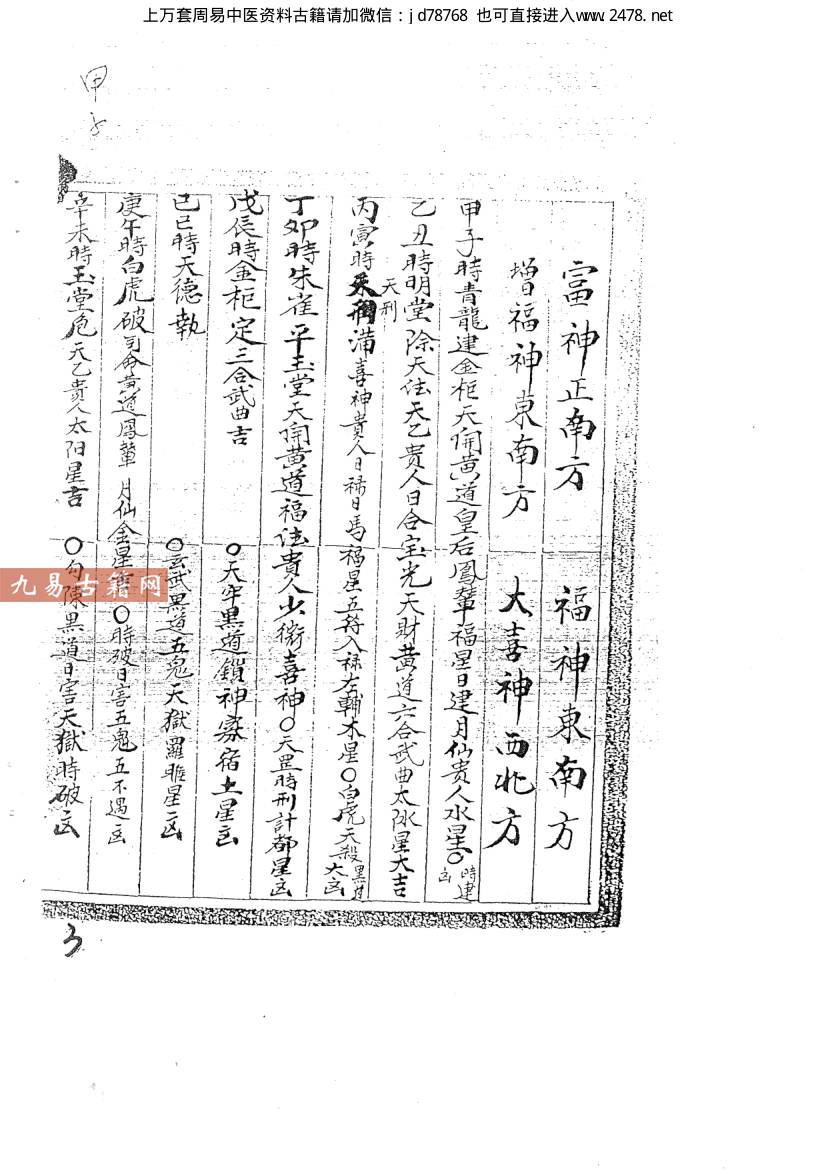 上万套周易中医资料古籍请加微信：jd78768 也可直接进入www.2478.net
甲子
富神正南方 福神東南方
增福神東南方 大喜神西北方
甲子時青龍建金柜天開黄道皇后鳳輦福星日建月仙贵人水星○時建凶
乙丑時明堂除天任天乙贵人日合宝光天財黄道六合武曲太阴星大吉
丙寅時天刑满喜神貴人日禄日馬福星五符入禄左輔木星○白虎天殺黑道大凶
天刑
丁卯時朱雀平玉堂天開黄道福德貴人少微喜神○天罡時刑計都星凶
戊辰時金柜定三合武曲吉 ○天牢黑道鎖神寡宿土星凶
己巳時天德執 ○玄武黑道五鬼天獄羅睺星凶
庚午時白虎破司命黄道鳳輦月仙金星 ○時破日害五鬼五不遇凶
辛未時玉堂危天乙貴人太阳星吉 ○勾陳黑道日害天獄時破凶
九易古籍网
3